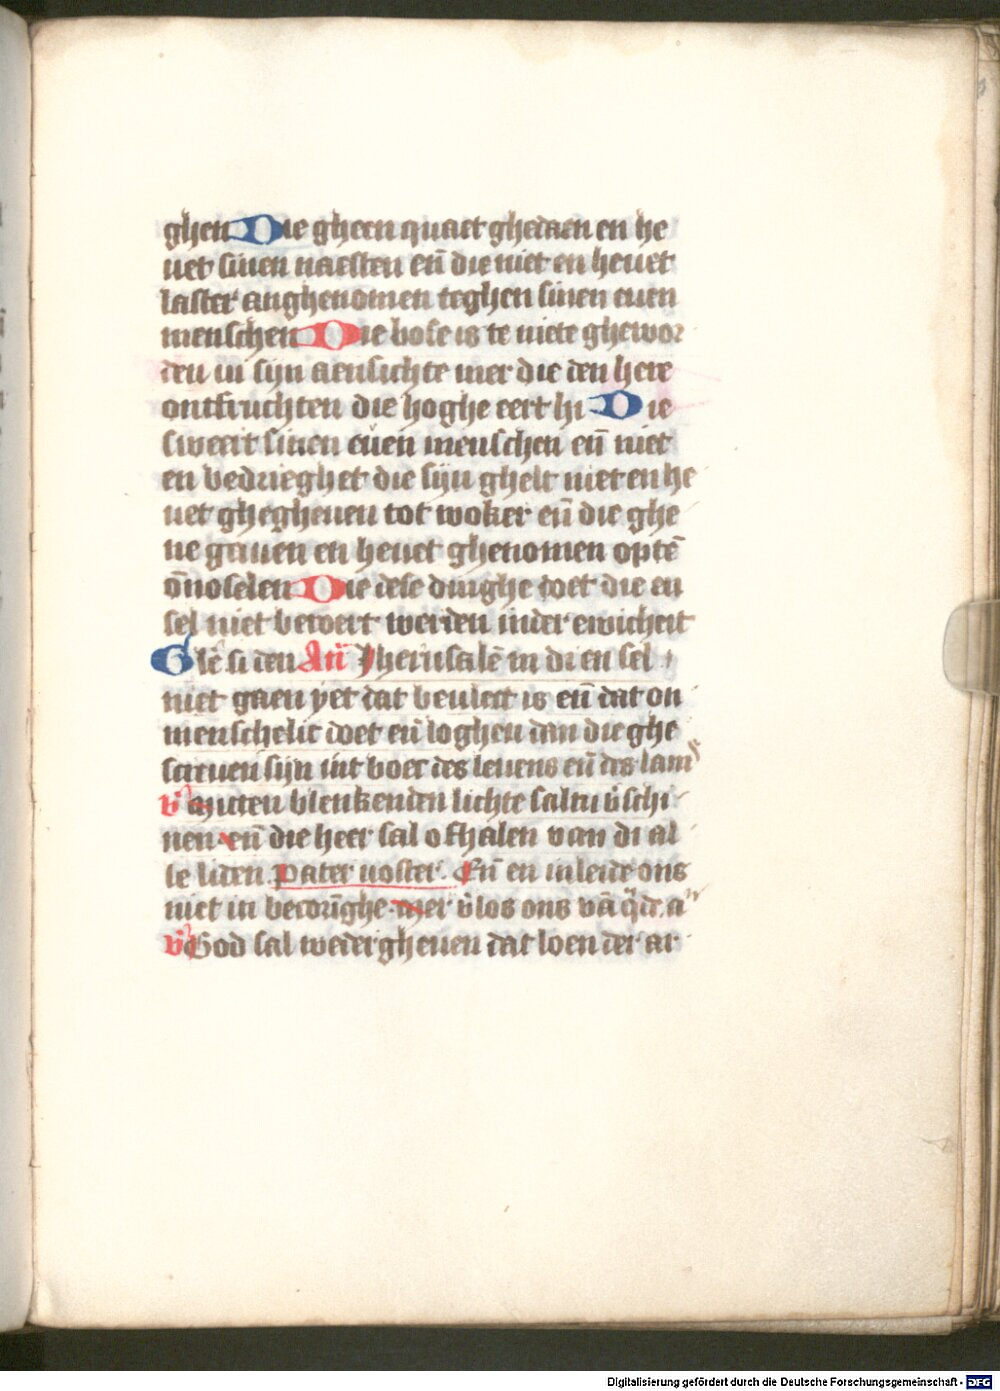 ghen Die gheen quaet ghedaen en he
uet sinen naesten eñ die niet en heuet
laster anghenomen teghen sinen euen
menschen Die bose is te niete ghewor
den in sijn aensichte mer die den here
ontfruchten die hoghe eert hi Die
sweert sinen euen menschen eñ niet
en bedrieghet die sijn ghelt niet en he
uet ghegheuen tot woker eñ die ghe
ue gauen en heuet ghenomen optē
ōnoselen Die dese dinghe doet die en
sel niet beroert werden inder ewicheit
Glē si den Añ Jherusalē in di en sel
niet gaen yet dat beulect is eñ dat on
menschelic doet eñ loghen dan die ghe
screuen sijn int boec des leuens eñ des lams
v̾ Mitten blenkenden lichte saltu v̄schi
nen eñ die heer sal ofhalen van di al
le liden Pater noster. Eñ en inleide ons
niet in becorīghe mer v̄los ons vā q̄de. a
v̾ God sal wedergheuen dat loen der ar
Digitalisierung gefördert durch die Deutsche Forschungsgemeinschaft - DFG